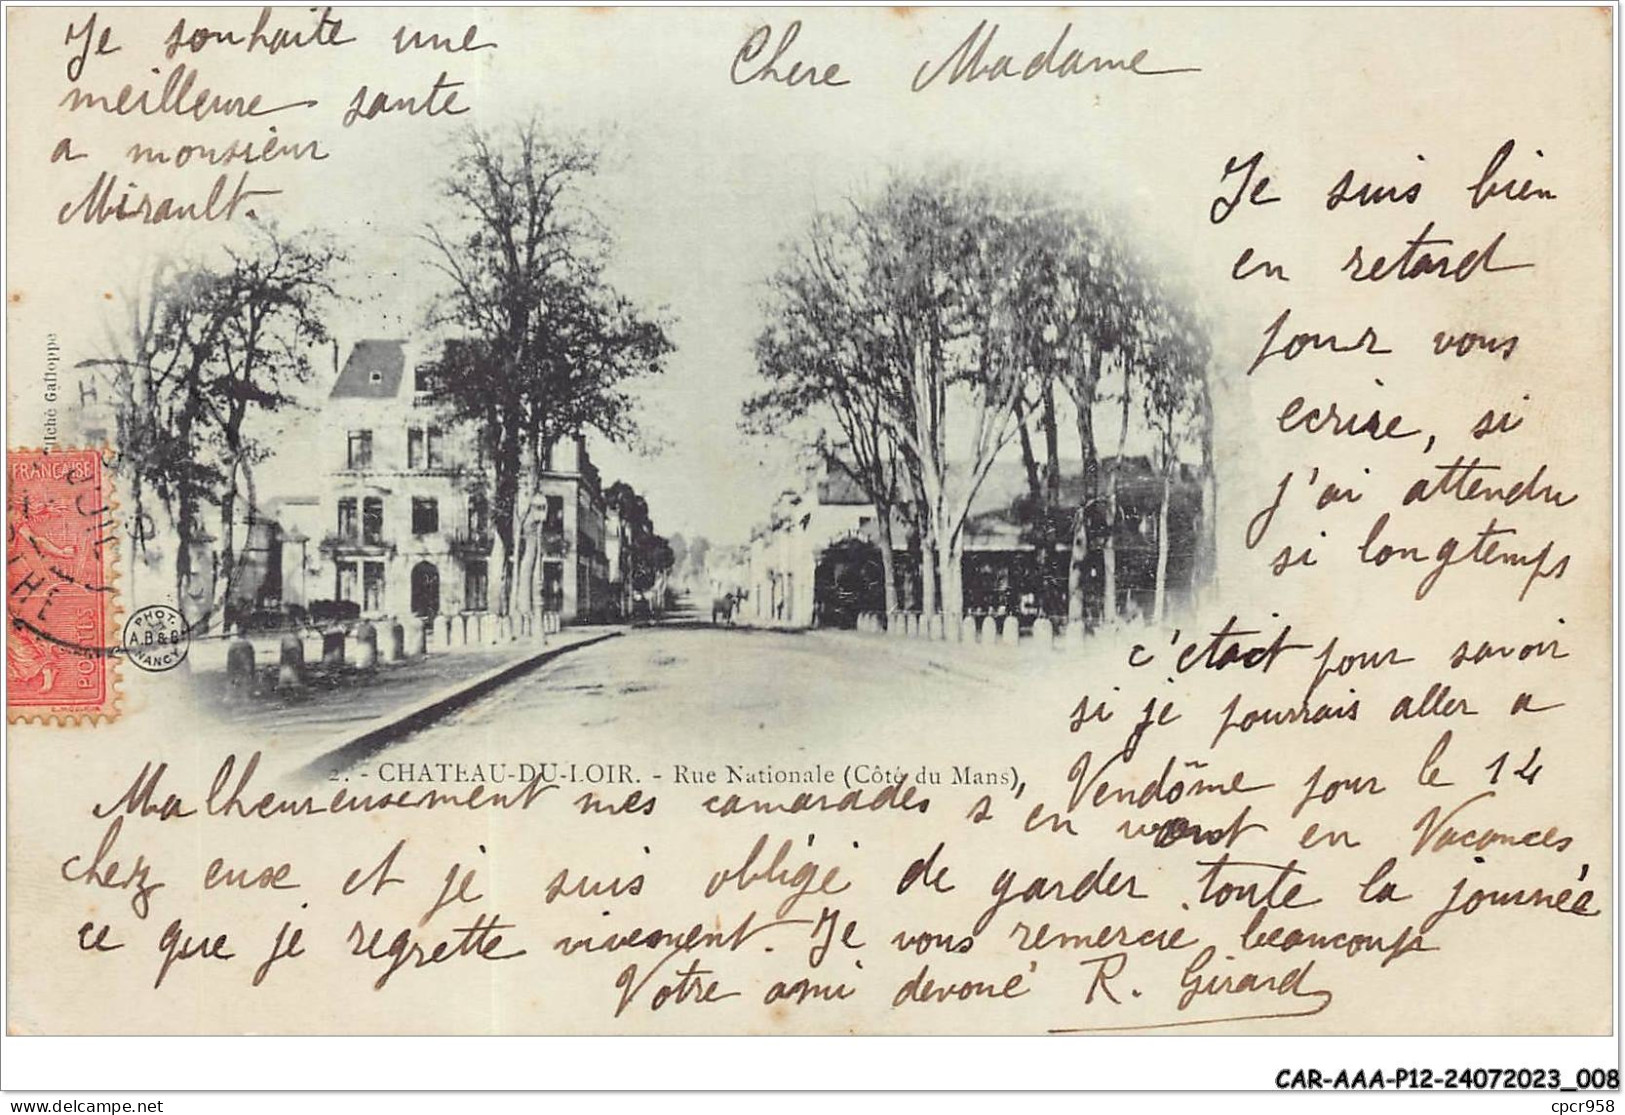 Chere Madame
Je suis bien
en retard
pour vous
ecrire, si
j'ai attendu
si longtemps
c'etait pour savoir
si je pourrais aller a
Vendôme pour le 14
Malheureusement mes camarades s'en vont en Vacances
chez euse et je suis obligé de garder toute la journée
ce que je regrette vivement. Je vous remercie beaucoup
Votre ami devoué R. Girard
Je souhaite une
meilleure sante
a monsieur
Mirault.
2. - CHATEAU-DU-LOIR. - Rue Nationale (Côté du Mans)
Cliché Galloppe
FRANÇAISE
POSTES
PHOT.
A.B & C
NANCY
CAR-AAA-P12-24072023_008
delcampe.net
cpcr958